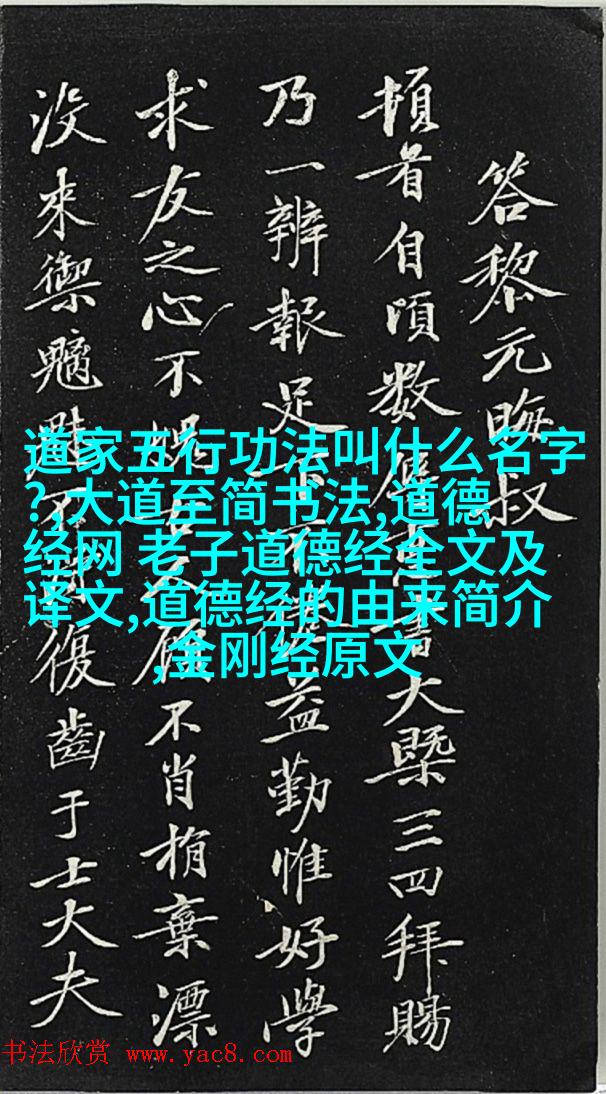 答黎元晦叔
頓首自頃数
書大槩三四拜賜
乃一辨報足
益勤惟好學
求友之心不
不肖捐棄漂
没来禦魑魅
復齒于士大夫
道家五行功法叫什么名字
?,大道至简书法,道德
经网 老子道德经全文及
译文,道德经的由来简介
,金刚经原文
书法欣赏 www.yac8.com